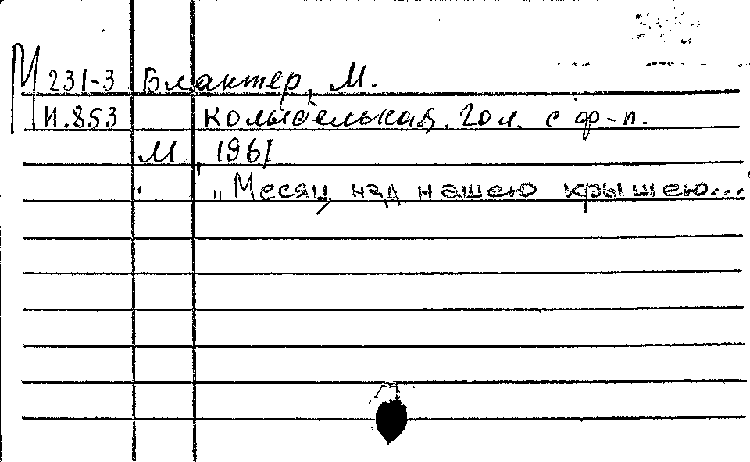 М 231-3 Блантер, М.
И.853 Колыбельная. Гол. с ф-п.
М., 1961
"Месяц над нашею крышею...